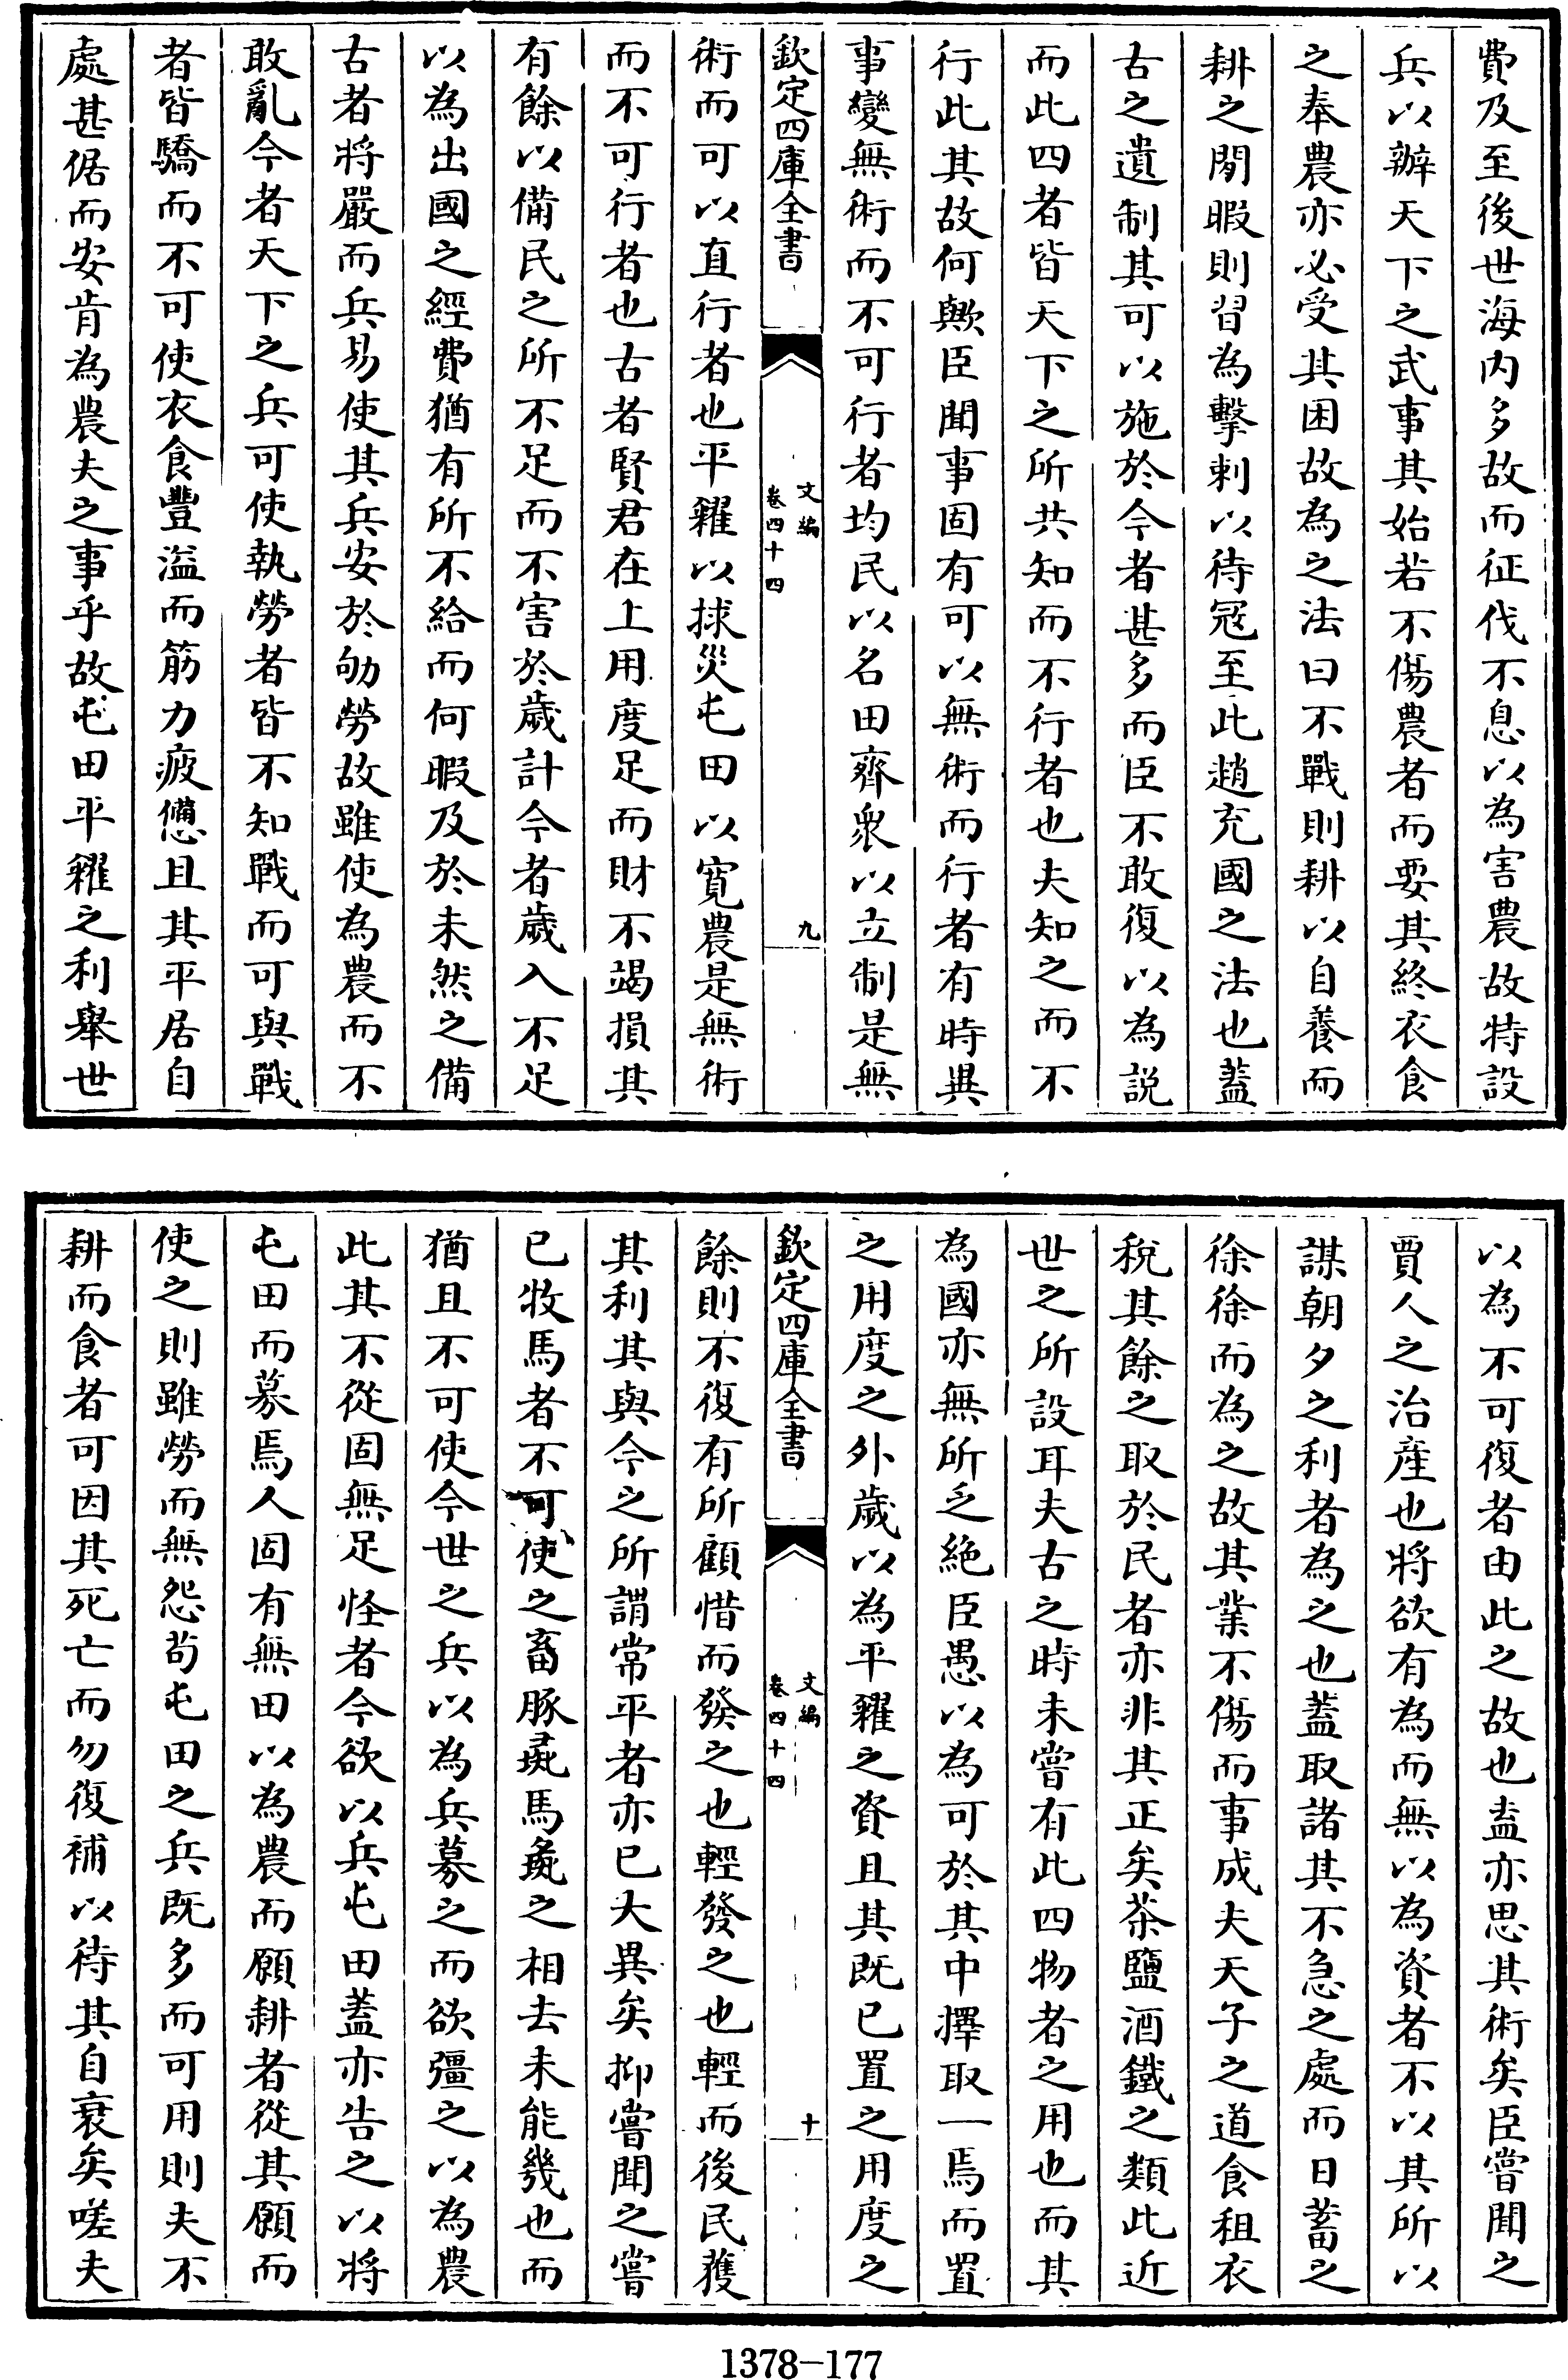 費及至後世海内多故而征伐不息以為害農故特設
兵以辦天下之武事其始若不傷農者而要其終衣食
之奉農亦必受其困故為之法曰不戰則耕以自養而
耕之閒暇則習為擊刺以待冦至此趙充國之法也蓋
古之遺制其可以施於今者甚多而臣不敢復以為説
而此四者皆天下之所共知而不行者也夫知之而不
行此其故何歟臣聞事固有可以無術而行者有時異
事變無術而不可行者均民以名田齊衆以立制是無
欽定四庫全書
文編
卷四十四
九
術而可以直行者也平糴以捄災屯田以寛農是無術
而不可行者也古者賢君在上用度足而財不竭損其
有餘以備民之所不足而不害於歲計今者歲入不足
以為出國之經費猶有所不給而何暇及於未然之備
古者將嚴而兵易使其兵安於劬勞故雖使為農而不
敢亂今者天下之兵可使執勞者皆不知戰而可與戰
者皆驕而不可使衣食豐溢而筋力疲憊且其平居自
處甚倨而安肯為農夫之事乎故屯田平糴之利舉世
以為不可復者由此之故也盍亦思其術矣臣嘗聞之
賈人之治産也將欲有為而無以為資者不以其所以
謀朝夕之利者為之也蓋取諸其不急之處而日蓄之
徐徐而為之故其業不傷而事成夫天子之道食租衣
稅其餘之取於民者亦非其正矣茶鹽酒鐵之類此近
世之所設耳夫古之時未嘗有此四物者之用也而其
為國亦無所乏絶臣愚以為可於其中擇取一焉而置
之用度之外歲以為平糴之資且其既已置之用度之
欽定四庫全書
文編
卷四十四
十
餘則不復有所顧惜而發之也輕發之也輕而後民獲
其利其與今之所謂常平者亦已大異矣抑嘗聞之嘗
已牧馬者不可使之畜豚彘馬彘之相去未能幾也而
猶且不可使今世之兵以為兵募之而欲彊之以為農
此其不從固無足怪者今欲以兵屯田蓋亦告之以將
屯田而募焉人固有無田以為農而願耕者從其願而
使之則雖勞而無怨苟屯田之兵既多而可用則夫不
耕而食者可因其死亡而勿復補以待其自衰矣嗟夫
1378-177